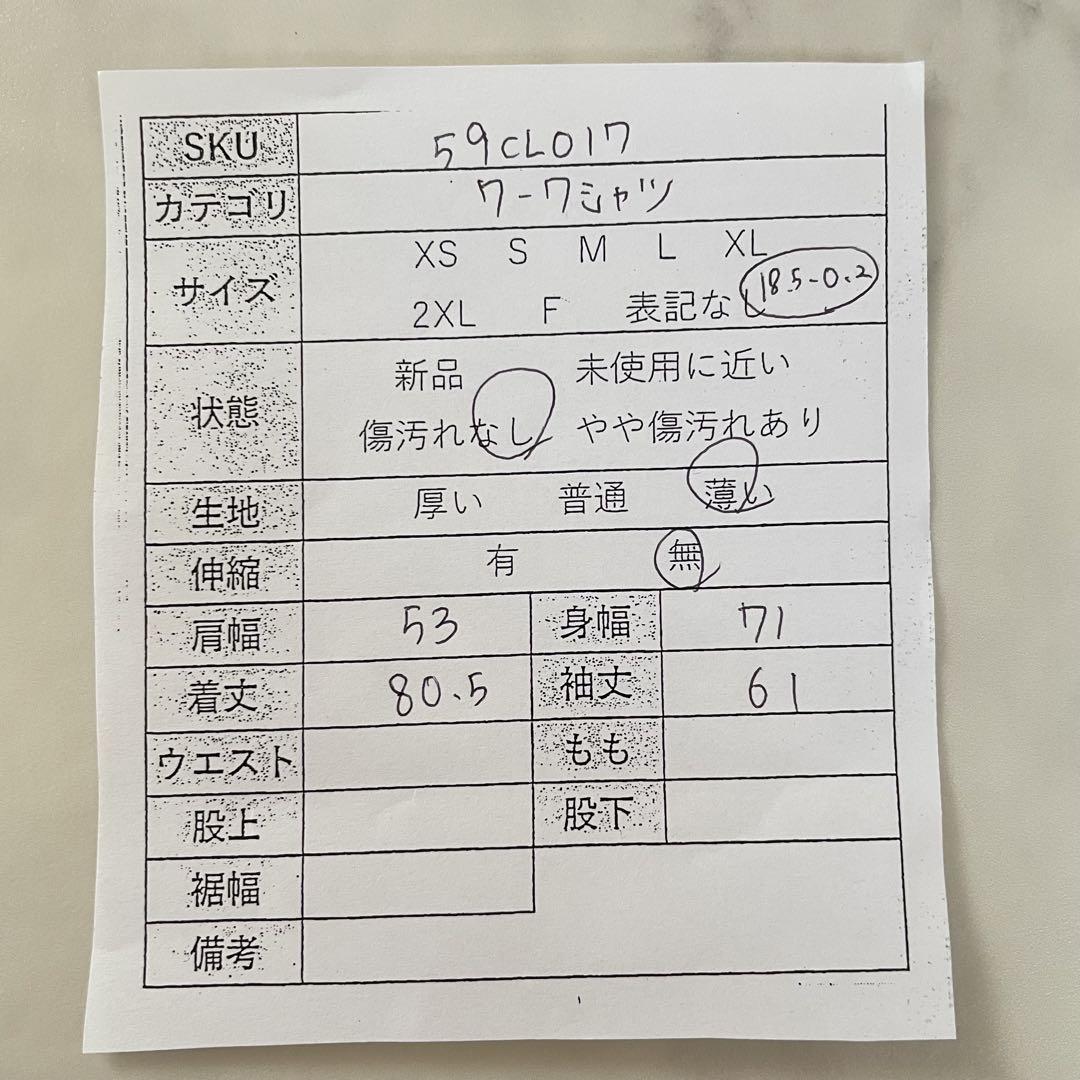 SKU 59CL017
カテゴリ ワークシャツ
サイズ XS S M L XL
2XL F 表記なし 18.5-0.2
状態 新品 未使用に近い
傷汚れなし やや傷汚れあり
生地 厚い 普通 薄い
伸縮 有 無
肩幅 53 身幅 71
着丈 80.5 袖丈 61
ウエスト もも
股上 股下
裾幅
備考